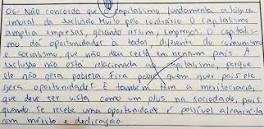 06- Não concordo que o capitalismo fundamenta a lógica
imoral da exclusão muito pelo contrário. O capitalismo
amplia impresas, gerando assim, empregos. O capitalis-
mo dá oportunidades a todos diferente do comunismo
e socialismo que não deu certo em nenhum país. A
exclusão não está relacionada ao capitalismo, porque
ele não gera pobreza fica pobre quem quer pois ele
gera oportunidades. E também tem a meritocracia,
que deve ser vista como um plus na sociedade, pois
quando se recebe uma oportunidade é possível alcançá-la
com mérito e dedicação.